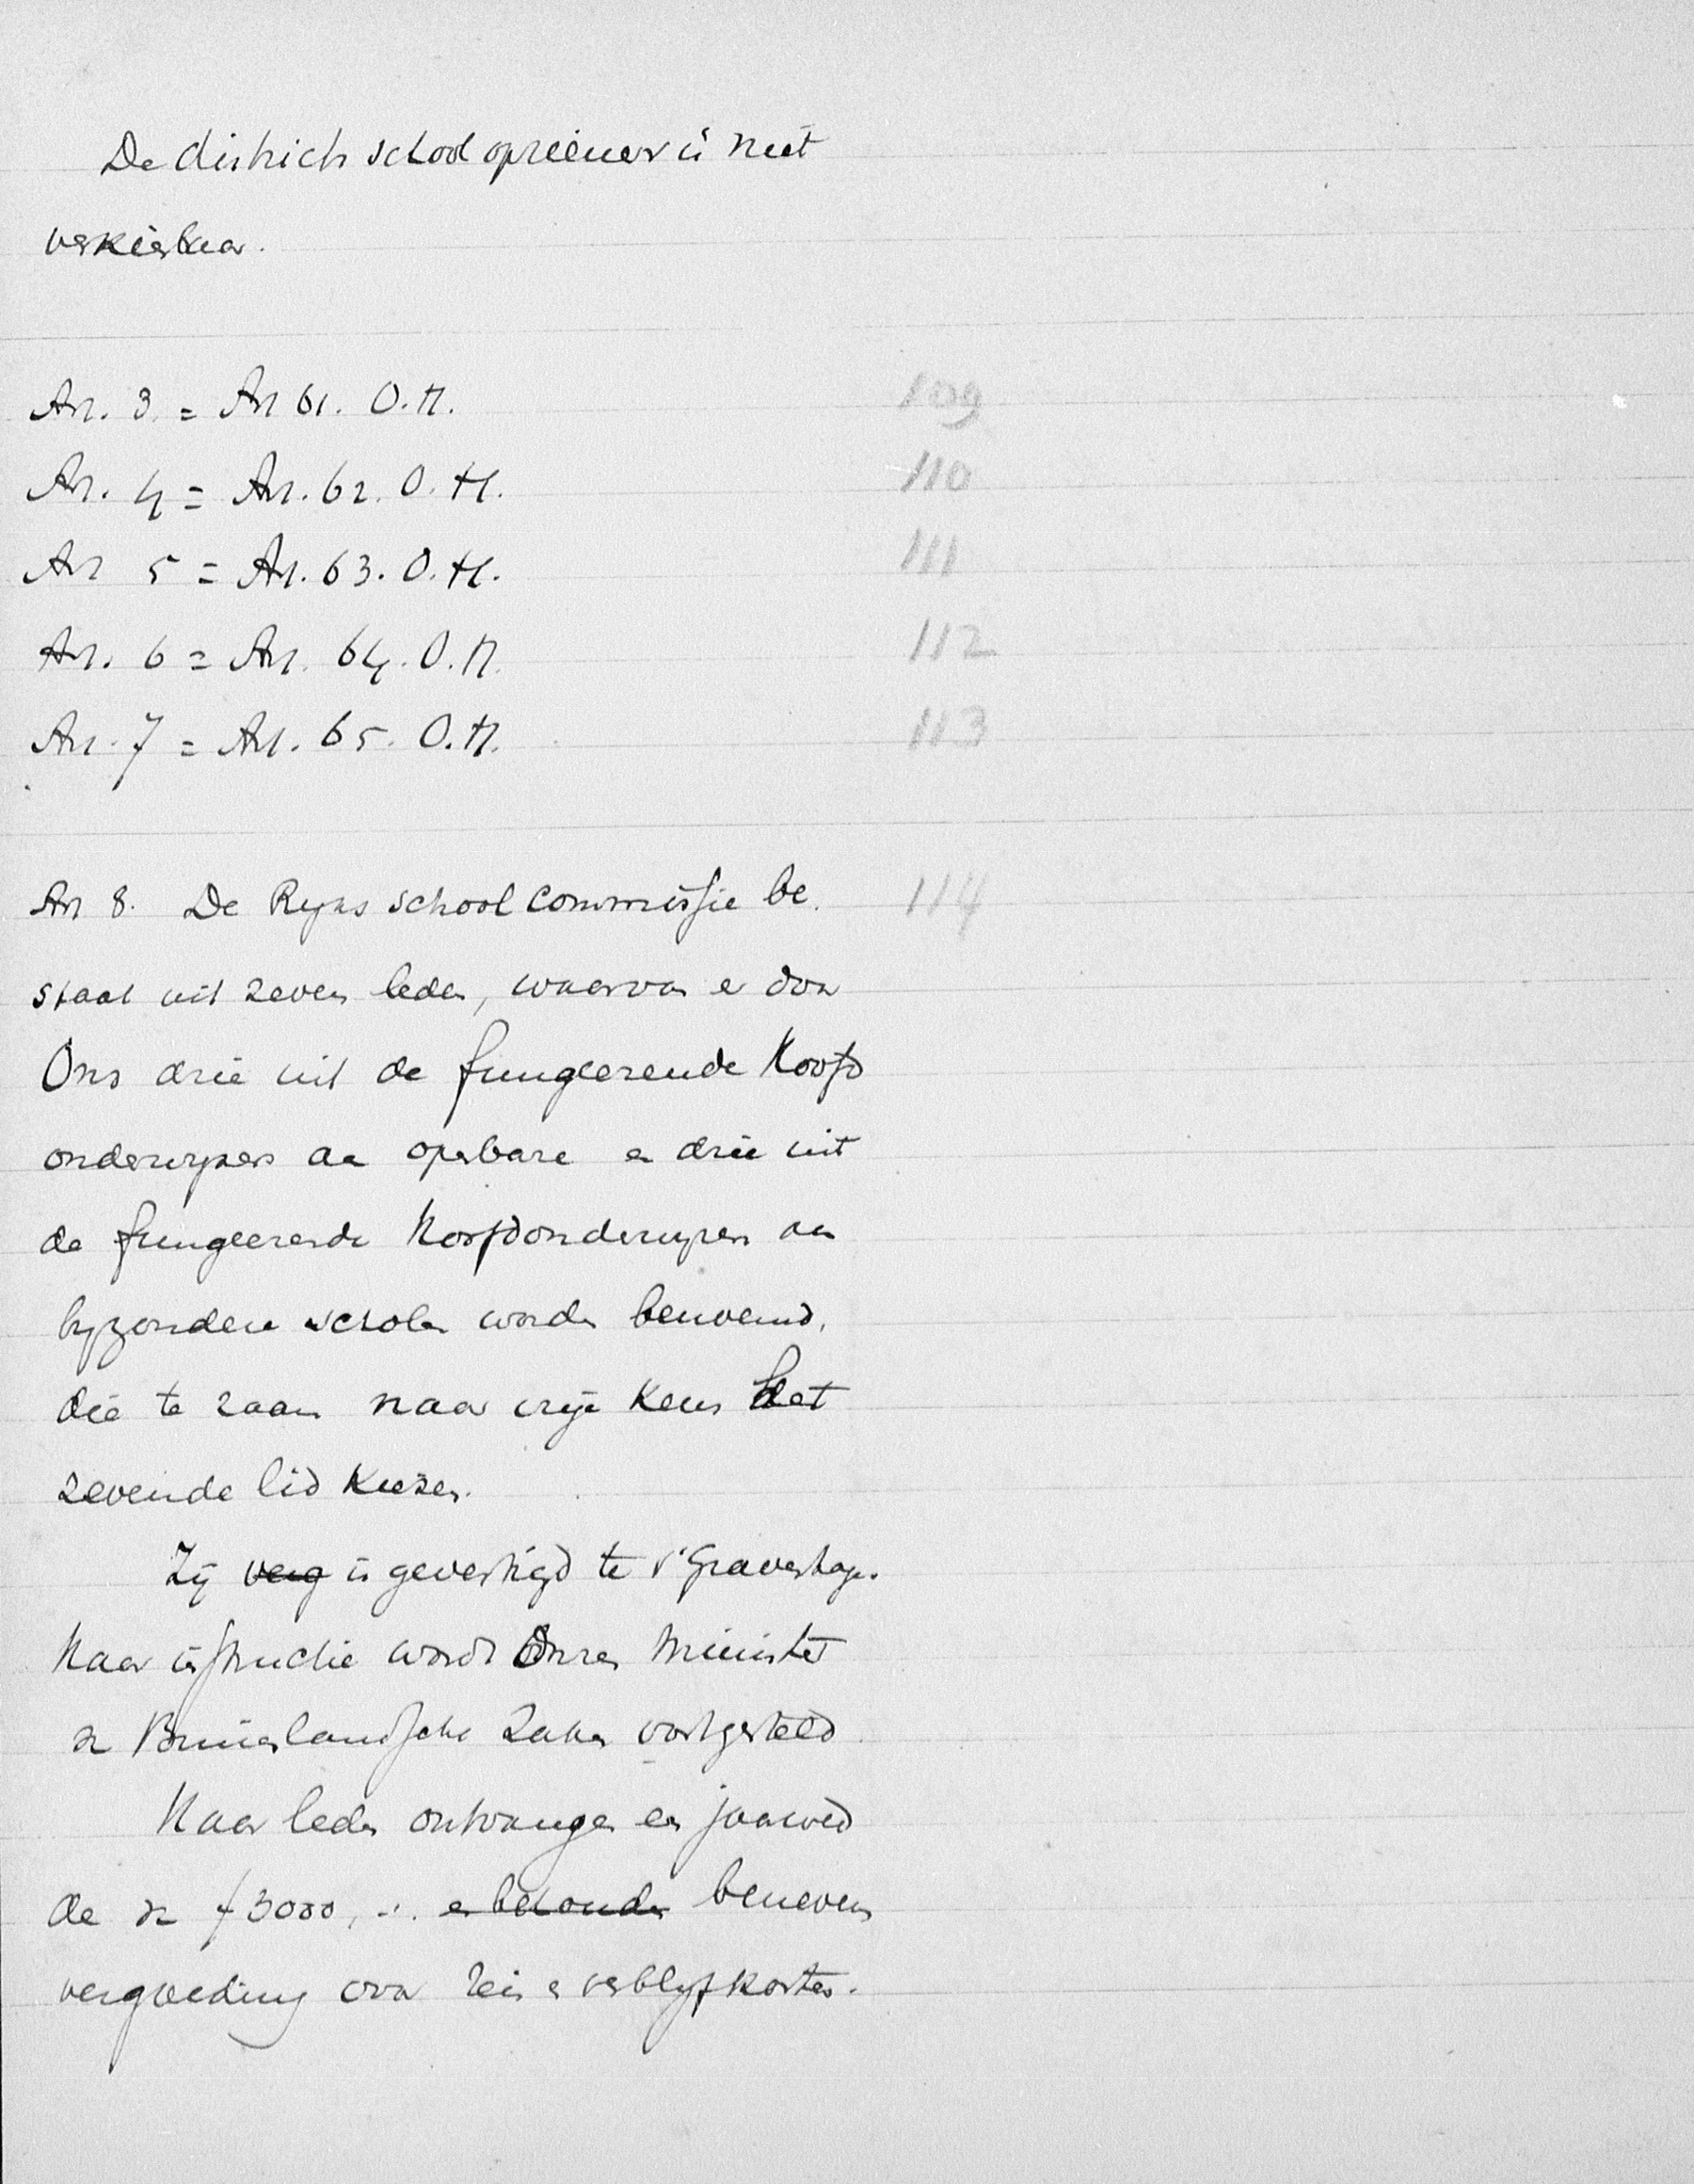 De districts schoolopziener is niet
verkiesbaar.
Art. 3. = Art 61. O.H. 109
Art. 4 = Art. 62. O.H. 110
Art 5 = Art. 63. O.H. 111
Art. 6 = Art. 64. O.H. 112
Art. 7 = Art. 65. O.H. 113
Art 8. De Ryks school commissie be- 114
staat uit zeven leden, waarvan er door
Ons drie uit de fungeerende Hoofd
onderwyzers aan openbare en drie uit
de fungeerende Hoofdonderwyzers aan
byzondere scholen worden benoemd,
die te zaam naar vrije keus het
zevende lid kiezen.
Zij verg is gevestigd te s'Gravenhage.
Haar instructie wordt door Onzen Minister
van Binnenlandsche Zaken vastgesteld
Haar leden ontvangen een jaarwed
de van f 3000,-. en bekonden benevens
vergoeding voor reis en verblyfkosten.